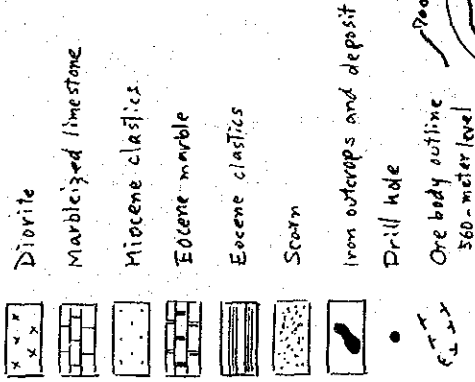 Diorite
Marbleized limestone
Miocene clastics
Eocene marble
Eocene clastics
Scarn
Iron outcrops and deposit
Drill hole
Ore body outline
560-meter level
700